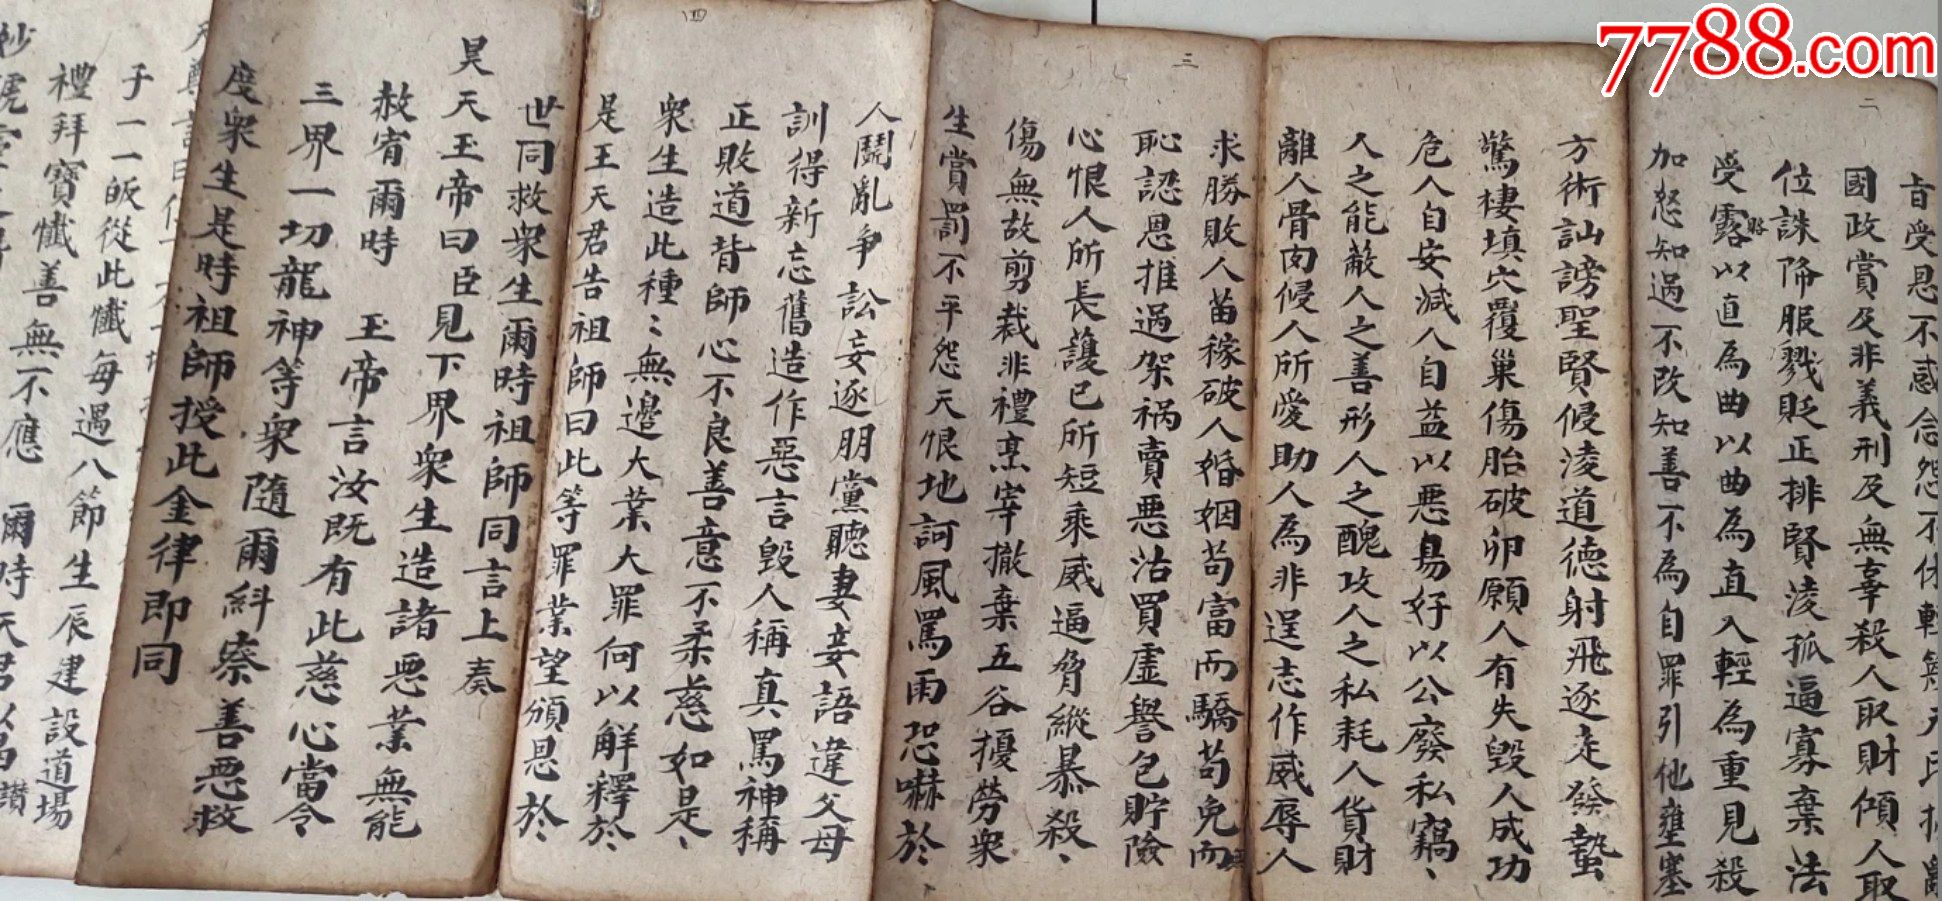 7788.com
二
旨受恩不感念怨不休輕無天
國政賞及非義刑及無辜殺人取財傾人取
位誅降服戮貶正排賢淩孤逼寡棄法
受露賂以直為曲以曲為直入輕為重見殺
加怒知過不改知善不為自罪引他壅塞
方術訕謗聖賢侵淩道德射飛逐走發蟄
驚棲填穴覆巢傷胎破卵願人有失毀人成功
危人自安減人自益以惡易好以公廢私竊、
人之能蔽人之善形人之醜攻人之私耗人貨財
離人骨肉侵人所愛助人為非逞志作威辱人
三
求勝敗人苗稼破人婚姻苟富而驕苟免而無
恥認恩推過架祸賣悪沽買虛譽包貯險
心恨人所長護己所短乘威逼脅縱暴殺、
傷無故剪裁非禮烹宰撤棄五谷擾勞衆
生賞罰不平怨天恨地訶風罵雨恐嚇於、
四
人鬪亂爭訟妄逐朋黨聽妻妾語違父母
訓得新忘舊造作惡言毀人稱真罵神稱
正敗道背師心不良善意不柔慈如是、
衆生造此種〻無邊大業大罪何以解釋於
是王天君告祖師曰此等罪業望頒恩於、
世同救衆生爾時祖師同言上奏
昊天玉帝曰臣見下界衆生造諸悪業無能
赦宥爾時 玉帝言汝既有此慈心當令
三界一切龍神等衆隨爾糾察善悪救
度衆生是時祖師授此金律即同
子一一皈從此懺每遇八節生辰建設道場
禮拜寶懺善無不應 爾時天君以